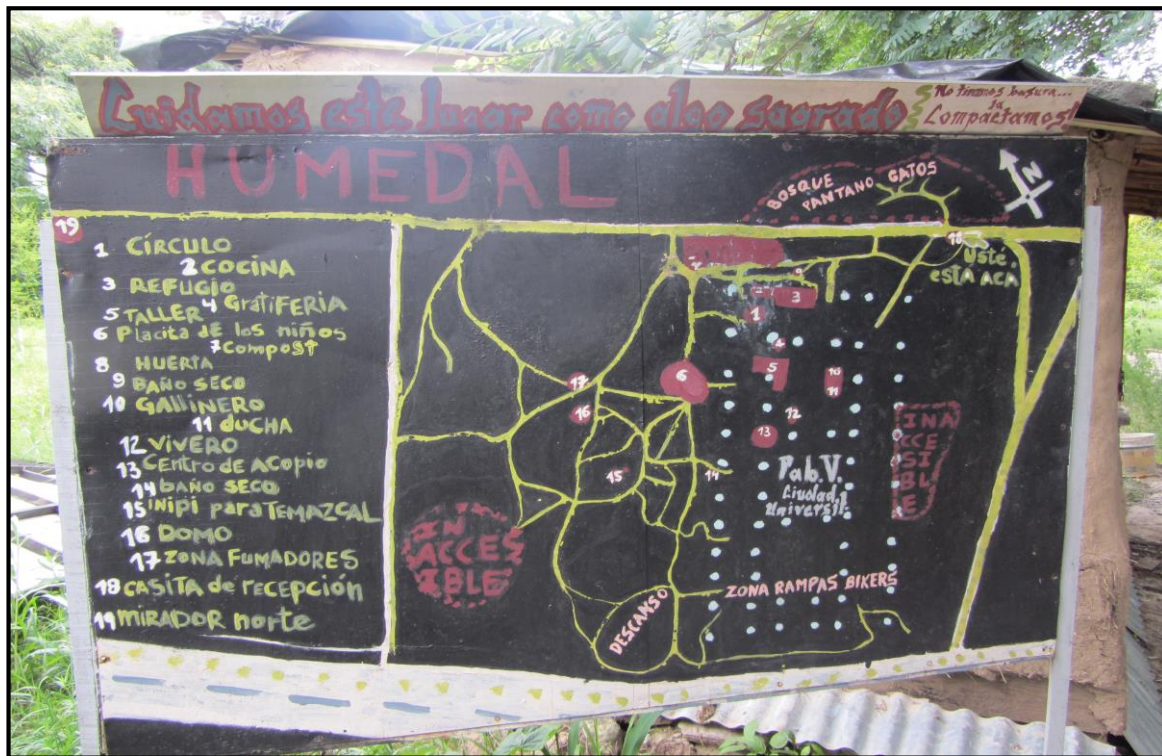 Cuidamos este lugar como algo sagrado
No tiramos basura...
la
Compactamos!
HUMEDAL
BOSQUE
PANTANO GATOS
N
19
18
Usté
está ACA
1 CÍRCULO
2 COCINA
3 REFUGIO
4 GratiFERIA
5 TALLER
6 Placita de los niños
7 Compost
8 HUERTA
9 BAÑO SECO
10 GALLINERO
11 DUCHA
12 VIVERO
13 Centro de ACOPIO
14 baño SECO
15 INIPI para TEMAZCAL
16 DOMO
17 ZONA FUMADORES
18 CASITA de recepción
19 MIRADOR norte
3
1
4
5
6
10
11
17
16
12
13
15
14
INA
CCE
SI
BL
E
Pab.V.
Ciudad
Universit.
IN
ACCES
IBLE
ZONA RAMPAS BIKERS
DESCANSO